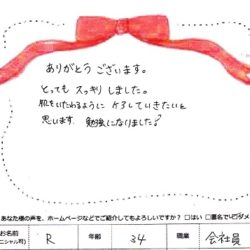 ありがとうございます。
とっても スッキリ しました。
肌をいたわるように ケアしていきたいと
思います 勉強になりました!
あなた様の声を、ホームページなどでご紹介してもよろしいですか? □はい □匿名で □ダメ
お名前 R 年齢 34 職業 会社員
ニシャル可)